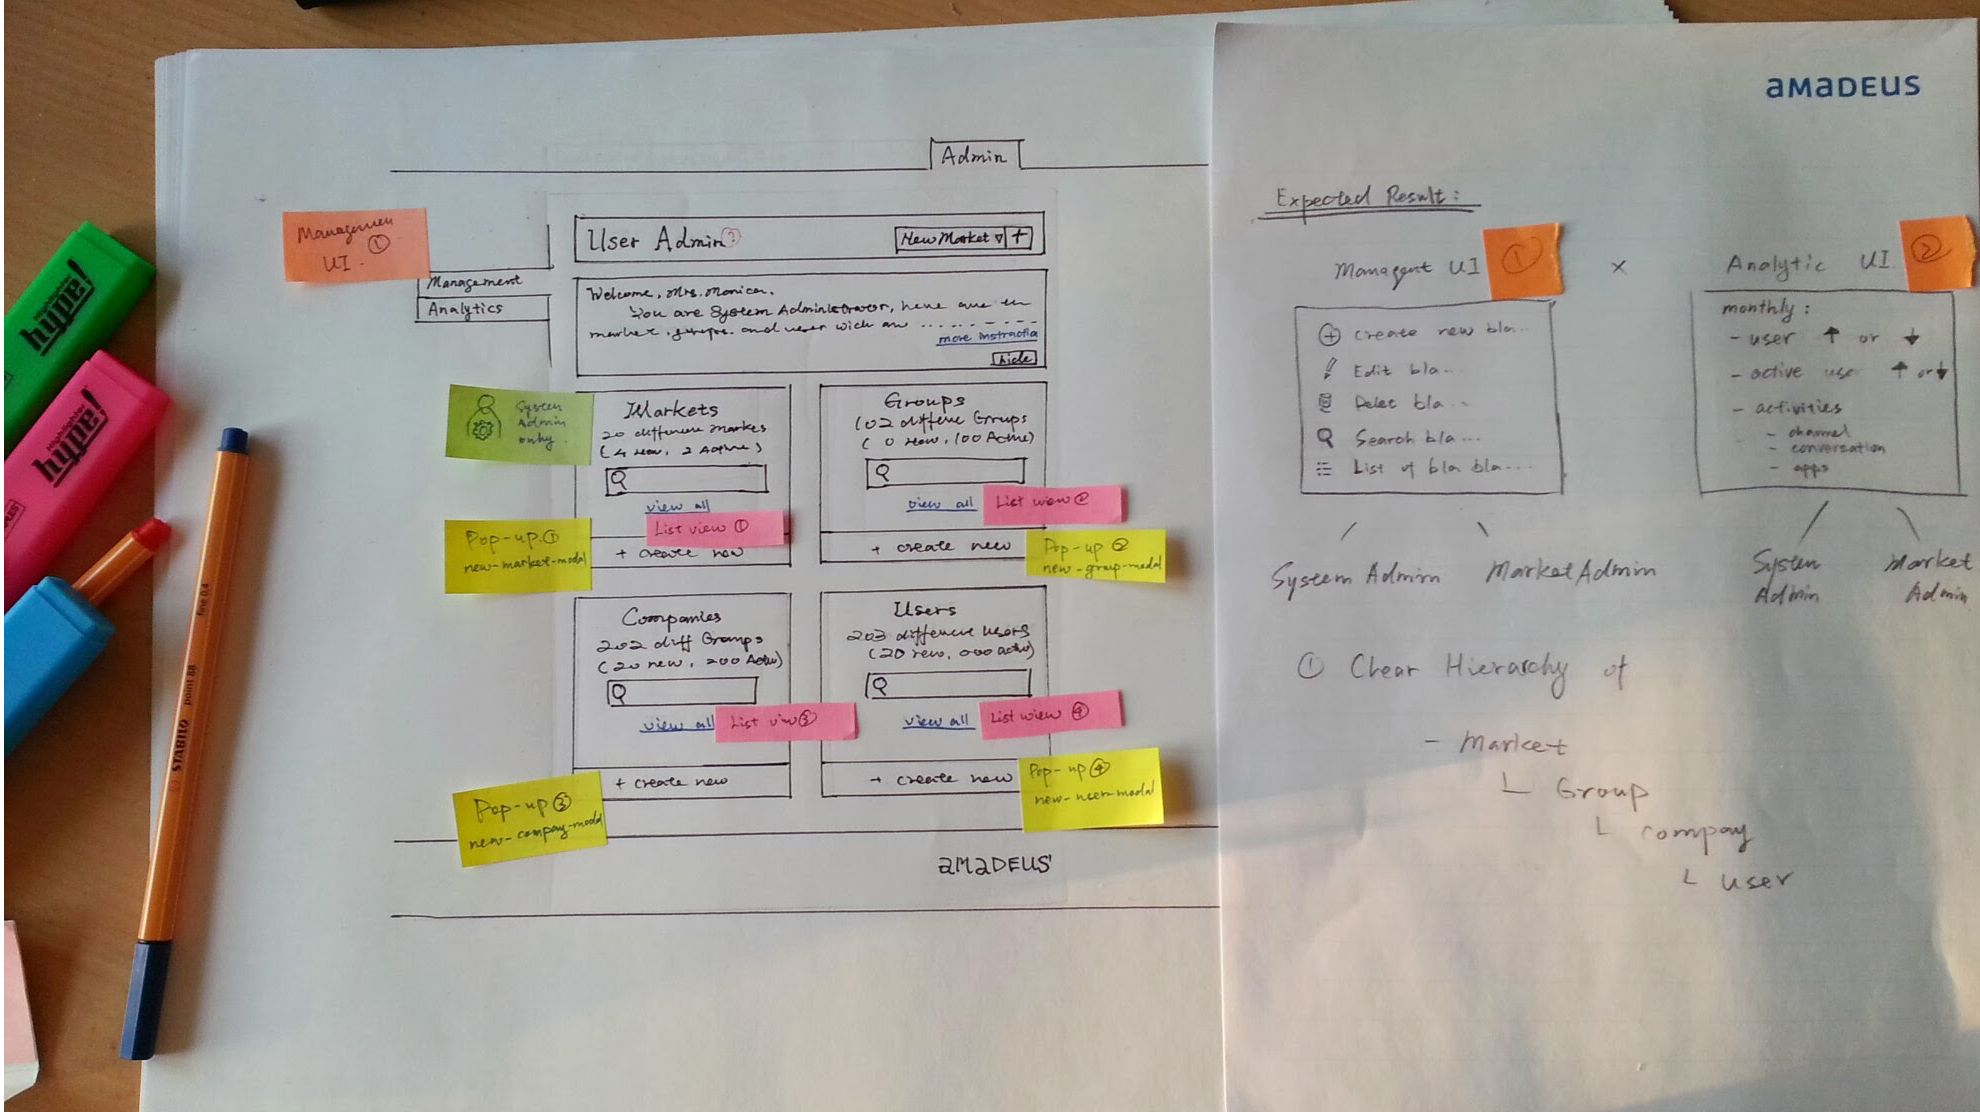 Admin
Management
① UI.
Management
Analytics
User Admin?
New Market ▽ +
Welcome, Mrs. Monica.
You are System Administrator, here are
market, and user
more
hide
System
Admin
only.
Markets
20 different Markes
(4 New, 2 Active)
view all
List view ①
+ create new
Pop-up.①
new-market-modal
Groups
102 differe Groups
(0 New, 100 Active)
view all
List view ②
+ create new
Pop-up ②
new-group-modal
Companies
202 diff Groups
(20 new, 200 Active)
view all
List viw③
+ create new
Pop-up ③
new-compay-modal
Users
203 different users
(20 new, 000 active)
view all
List view ④
+ create new
Pop-up ④
new-user-modal
aMaDEUS
aMaDEUS
Expected Result:
Managent UI ①
x
Analytic UI. ②
+ create new bla...
Edit bla...
Delet bla...
Search bla...
List of bla bla....
monthly:
- user ↑ or ↓
- active user ↑ or ↓
- activities
- channel
- conversation
- apps
System Admin
Market Admin
System
Admin
Market
Admin
① Clear Hierarchy of
- Market
└ Group
└ compay
└ user
hype!
Highlighter
hype!
Highlighter
STABILO
point 88
fine 0.4